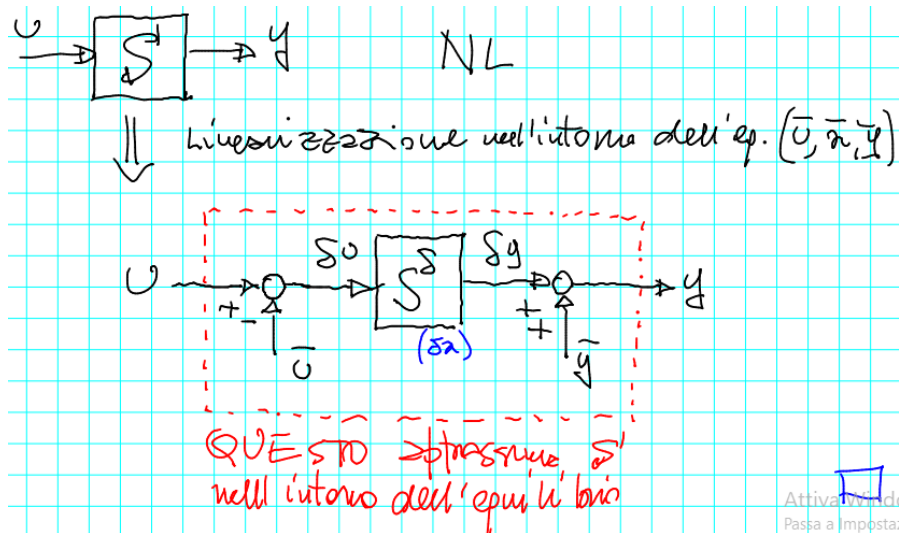 u S y NL
Linearizzazione nell'intorno dell'eq. (ū, x̄, ȳ)
u + - δu S^δ δy + + y
ū (δx) ȳ
QUESTO approssima S
nell'intorno dell'equilibrio
Attiva Windo
Passa a Impostaz